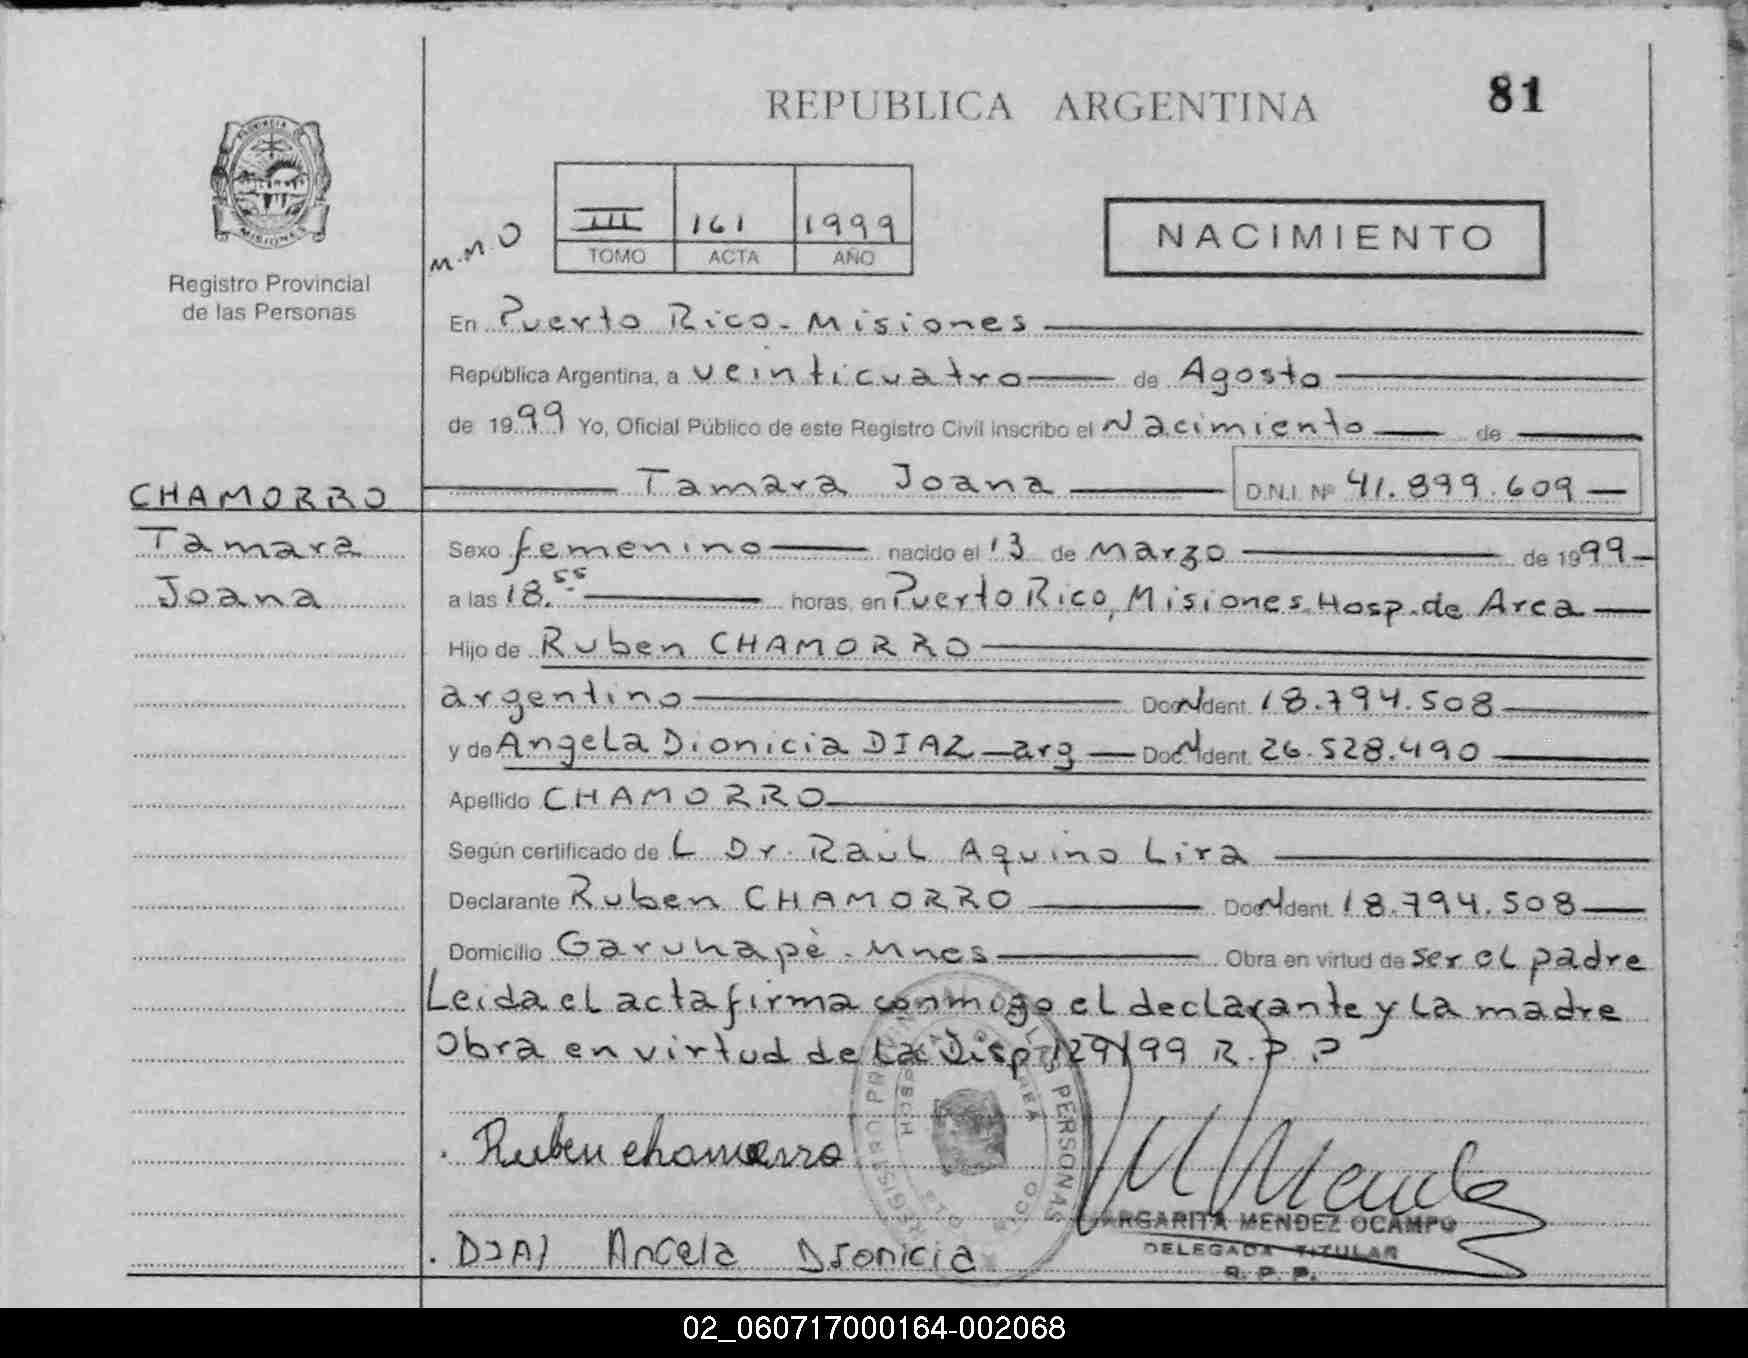 REPUBLICA ARGENTINA
81
PROVINCIA DE
MISIONES
Registro Provincial
de las Personas
M.M.O
III 161 1999
TOMO ACTA AÑO
NACIMIENTO
En Puerto Rico. Misiones
República Argentina, a veinticuatro de Agosto
de 1999 Yo, Oficial Público de este Registro Civil inscribo el Nacimiento de
Tamara Joana D.N.I. Nº 41.899.609
CHAMORRO
Tamara
Joana
Sexo femenino nacido el 13 de Marzo de 1999
a las 18.55 horas, en Puerto Rico, Misiones. Hosp. de Area
Hijo de Ruben CHAMORRO
argentino Doc. Ident. 18.794.508
y de Angela Dionicia DIAZ arg Doc. Ident. 26.528.490
Apellido CHAMORRO
Según certificado de L Dr. Raul Aquino Lira
Declarante Ruben CHAMORRO Doc. Ident. 18.794.508
Domicilio Garuhapè. Mnes Obra en virtud de ser el padre
Leida el acta firma conmigo el declarante y la madre
Obra en virtud de la Disp 129/99 R.P.P
REGISTRO PROVINCIAL DE LAS PERSONAS
Ruben chamorro
MARGARITA MENDEZ OCAMPO
DELEGADA TITULAR
R. P. P.
DIAZ Angela Dionicia
02_060717000164-002068